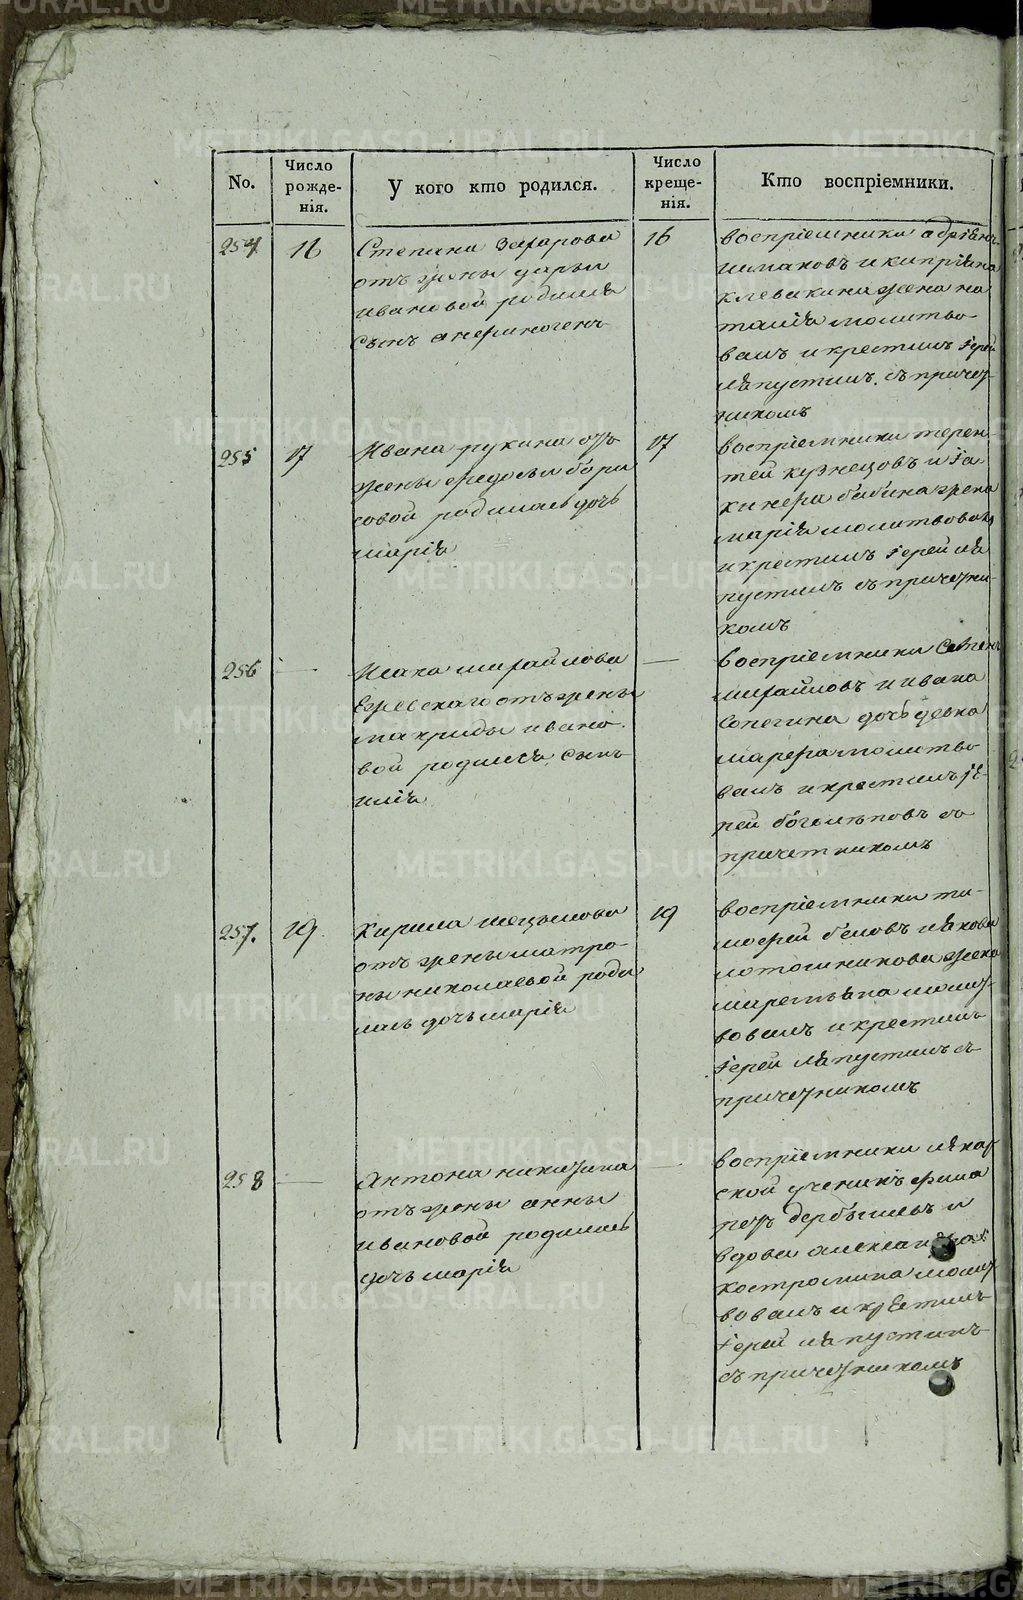 No.
Число рожде-нія.
У кого кто родился.
Число креще-нія.
Кто воспріемники.
254
16
Степана Захарова
отъ жены дарьи
ивановой родился
сынъ анфиногенъ
16
воспріемники адріанъ
шмаковъ и кипріана
клевакина жена на
талія молитво
валъ и крестилъ Іерей
ляпустинъ съ причет-
никомъ
255
17
Ивана рукина отъ
жены федосьи бори
совой родилась дочь
марія
17
воспріемники терен-
тей кузнецовъ и
бабина жена
марія молитвовалъ
и крестилъ Іерей ля
пустинъ съ причетни-
комъ
256
Исака михайлова
отъ жены
макриды ивано
вой родился сынъ
илія
воспріемники Семенъ
михайловъ и ивана
дочь девка
марфа молитво
валъ и крестилъ Іе-
рей боголеповъ съ
причетникомъ
257.
19
Кирила
отъ жены матро-
ны николаевой роди
лась дочь марія
19
воспріемники ти-
мофей беловъ и якова
лотошникова жена
маремьяна молит
вовалъ и крестилъ
Іерей ляпустинъ съ
причетникомъ
258
Антона никитина
отъ жены анны
ивановой родилась
дочь марія
воспріемники
ской ученикъ фила
тъ дербышевъ и
вдова александра
костромина молит
вовалъ и крестилъ
Іерей ляпустинъ
съ причетникомъ
METRIKI.GASO-URAL.RU